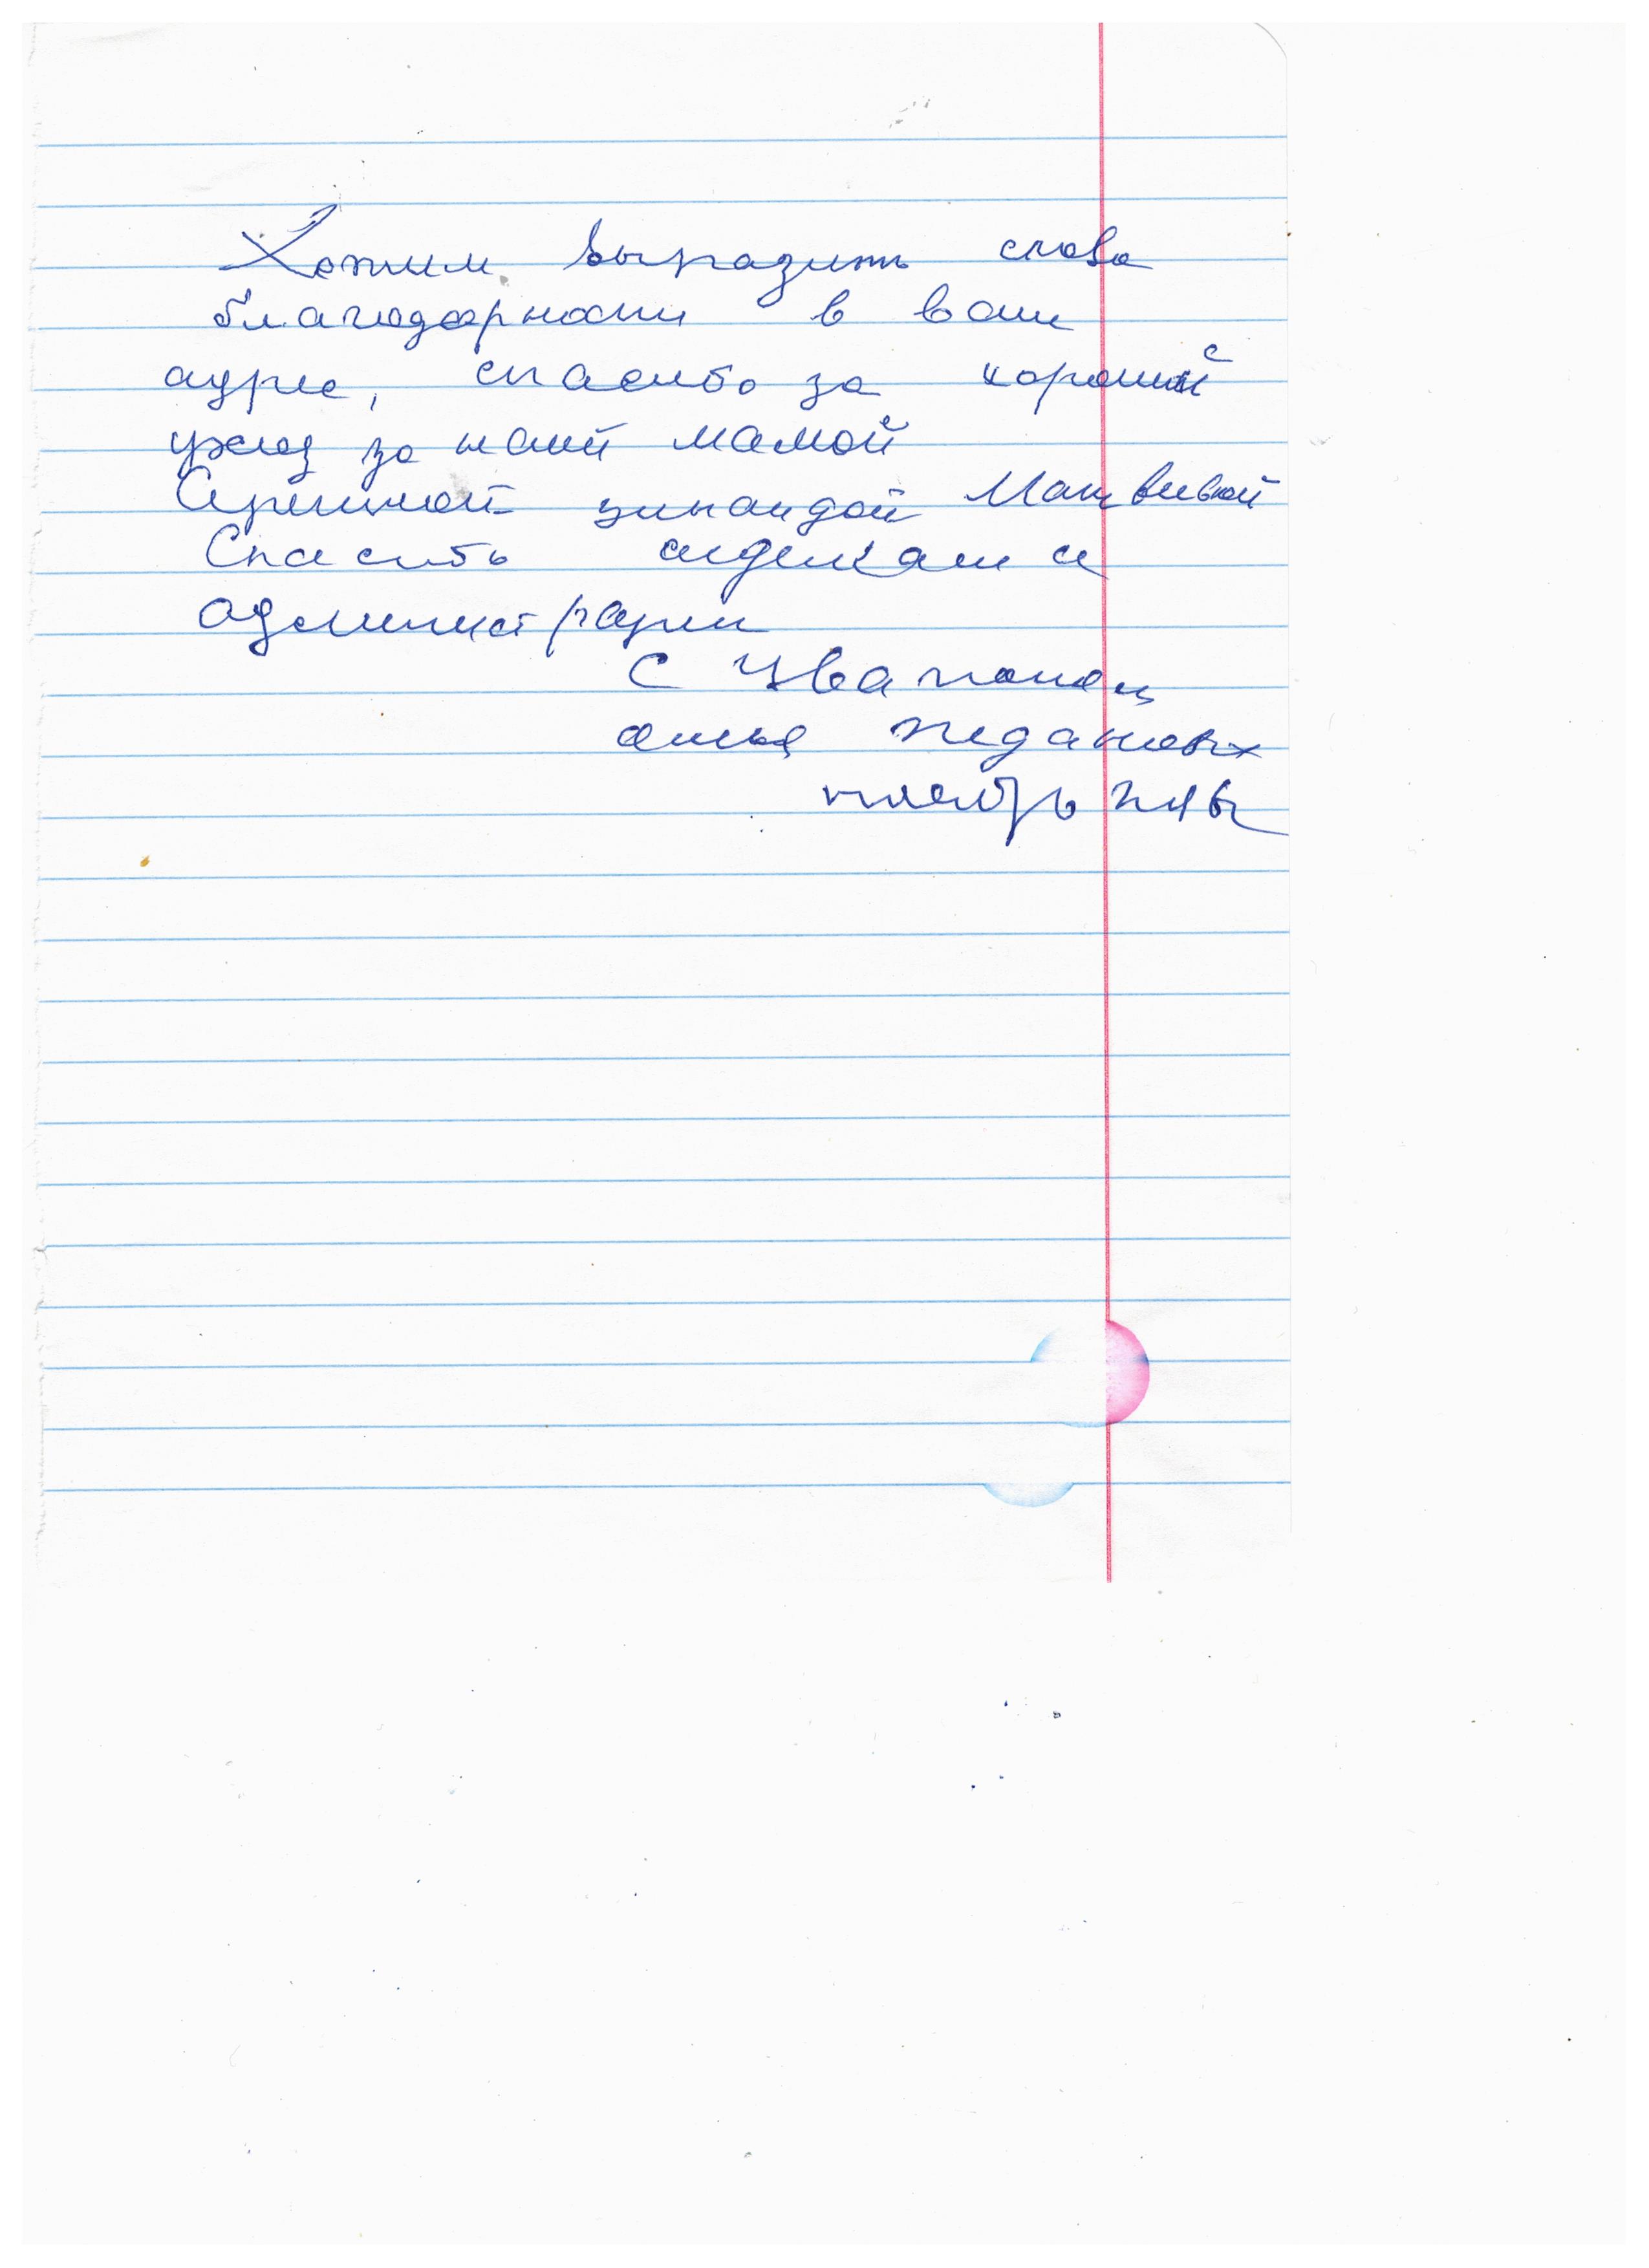 Хотим выразить слова
благодарности в ваш
адрес, спасибо за хороший
уход за нашей мамой
зинаидой Матвеевной
Спасибо сиделкам и
администрации
С Уважением
семья